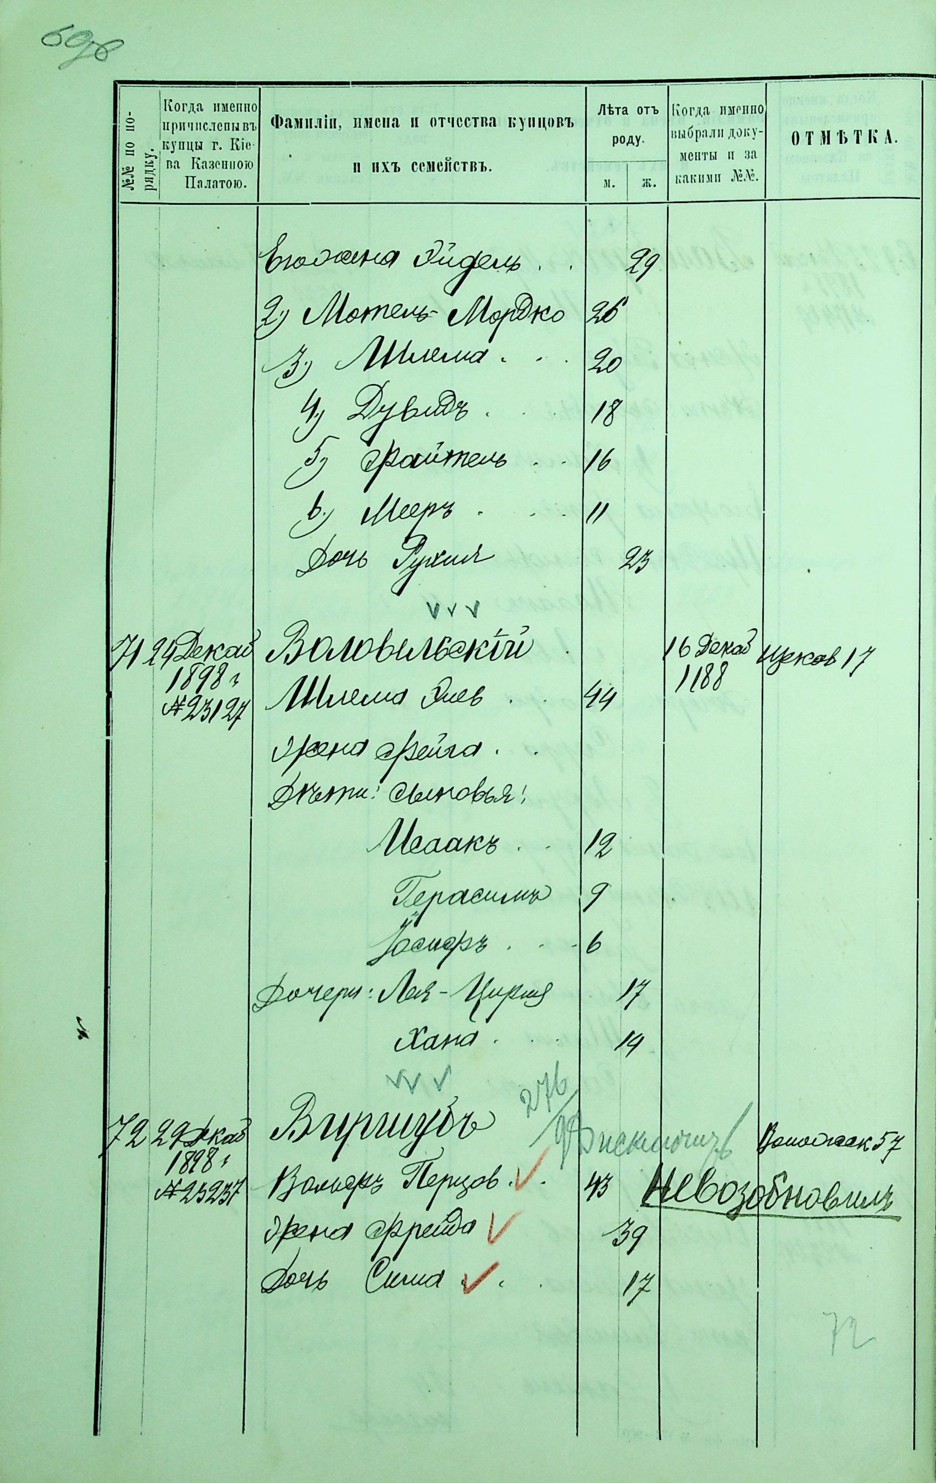 №№ по по-
рядку.
Когда именно
причислены въ
купцы г. Кіе-
ва Казенною
Палатою.
Фамиліи, имена и отчества купцовъ
и ихъ семействъ.
Лѣта отъ
роду.
м. ж.
Когда именно
выбрали доку-
менты и за
какими №№.
ОТМѢТКА.
Его жена Эйдель . . 29
2) Мотель-Мордко 26
3) Шлема . . . 20
4) Дувидъ . . 18
5) Файтель . . 16
6) Мееръ . . 11
Дочь Рухля 23
71 24 Декаб Воловельскій . 16 Декаб
1898 г 1188
№ 23127 Шлема Аиев . 44
Жена Фейга . .
Дѣти: сыновья:
Исаакъ . . 12
Герасимъ 9
Іосифъ . . . 6
Дочери: Лея-Цирля 17
Хана . . . 14
276
72 29 Декаб Виршубъ
1898 г
№ 23237 Вольфъ Перцов . . 43 Не возобновилъ
Жена Фрейда 39
Дочь Сима . . . 17
72